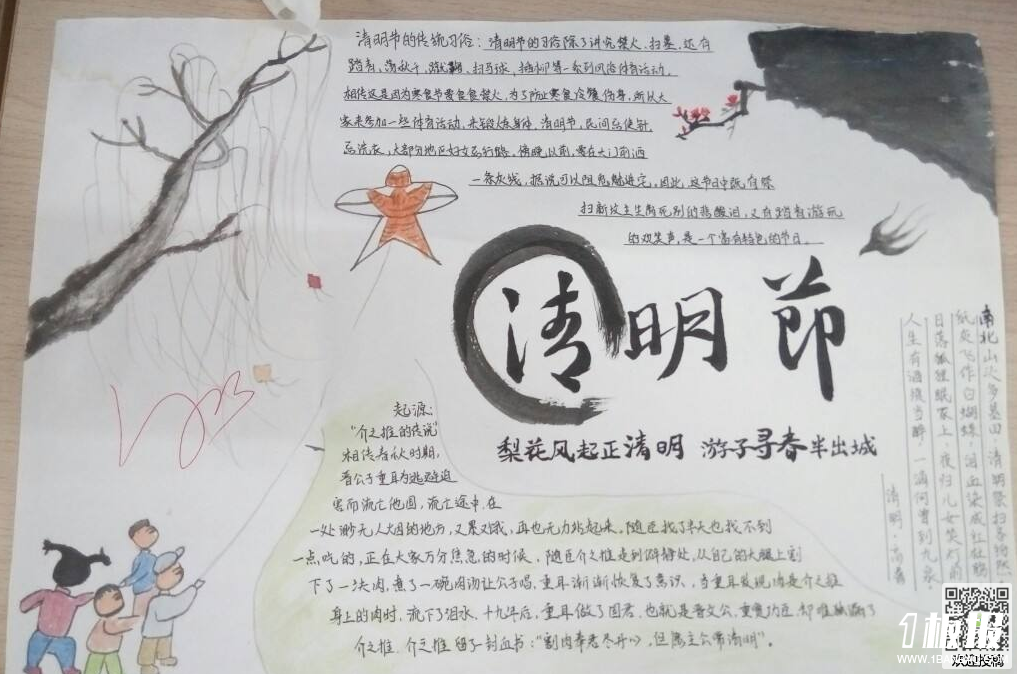 清明节的传统习俗：清明节的习俗除了讲究禁火、扫墓，还有
踏青、荡秋千、蹴鞠、打马球、插柳等一系列风俗体育活动。
相传这是因为寒食节要寒食禁火，为了防止寒食冷餐伤身，所以大
家来参加一些体育活动，来锻炼身体，清明节，民间忌使针，
忌洗衣，大部分地区妇女忌行路。傍晚以前，要在大门前洒
一条灰线，据说可以阻鬼魅进宅，因此，这节日中既有祭
扫新坟生生离死别的悲酸泪，又有踏青游玩
的欢笑声，是一个富有特色的节日。
清明節
梨花风起正清明 游子寻春半出城
起源：
“介之推的传说”
相传春秋时期，
晋公子重耳为逃避迫
害而流亡他国，流亡途中，在
一处渺无人烟的地方，又累又饿，再也无力站起来，随臣找了半天也找不到
一点吃的，正在大家万分焦急的时候，随臣介之推走到僻静处，从自己的大腿上割
下了一块肉，煮了一碗肉汤让公子喝，重耳渐渐恢复了意识，当重耳发现肉是介之推
身上的肉时，流下了泪水。十九年后，重耳做了国君，也就是晋文公，重赏功臣，却唯
介之推，介之推留了封血书：“割肉奉君尽丹心，但愿主公常清明”。
南北山头多墓田，清明祭扫各纷然
纸灰飞作白蝴蝶，泪血染成红杜鹃
日落狐狸眠冢上，夜归儿女笑灯前
人生有酒须当醉，一滴何曾到九泉
清明·高翥
1板报
WWW.1BANBAO.COM
欢迎投稿